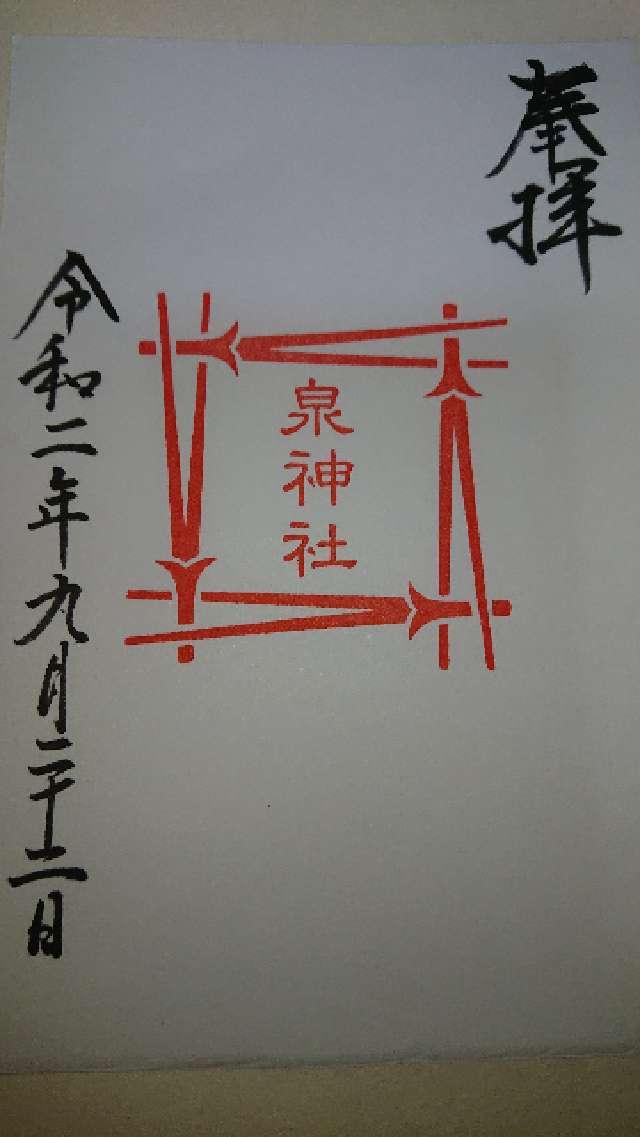 奉拝
泉神社
令和二年九月二十二日